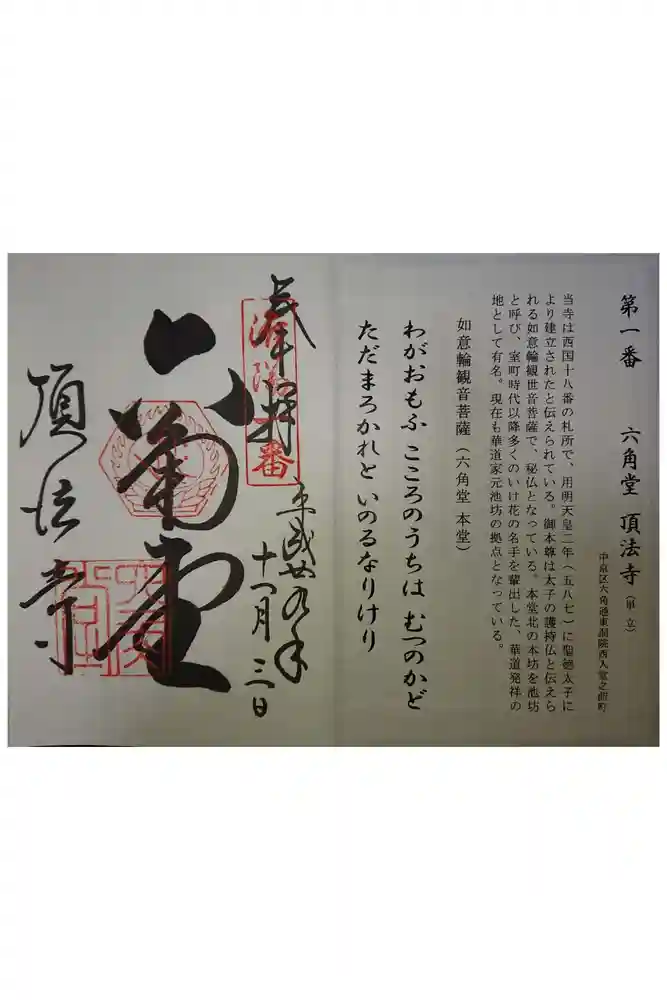 第一番 六角堂 頂法寺(単立)
中京区六角通東洞院西入堂之前町
当寺は西国十八番の札所で、用明天皇二年(五八七)に聖徳太子に
より建立されたと伝えられている。御本尊は太子の護持仏と伝えら
れる如意輪観世音菩薩で、秘仏となっている。本堂北の本坊を池坊
と呼び、室町時代以降多くのいけ花の名手を輩出した、華道発祥の
地として有名。現在も華道家元池坊の拠点となっている。
如意輪観音菩薩(六角堂 本堂)
わがおもふ こころのうちは むつのかど
ただまろかれと いのるなりけり
奉拝
洛陽一番
平成廿九年
十一月三日
六角堂
頂法寺